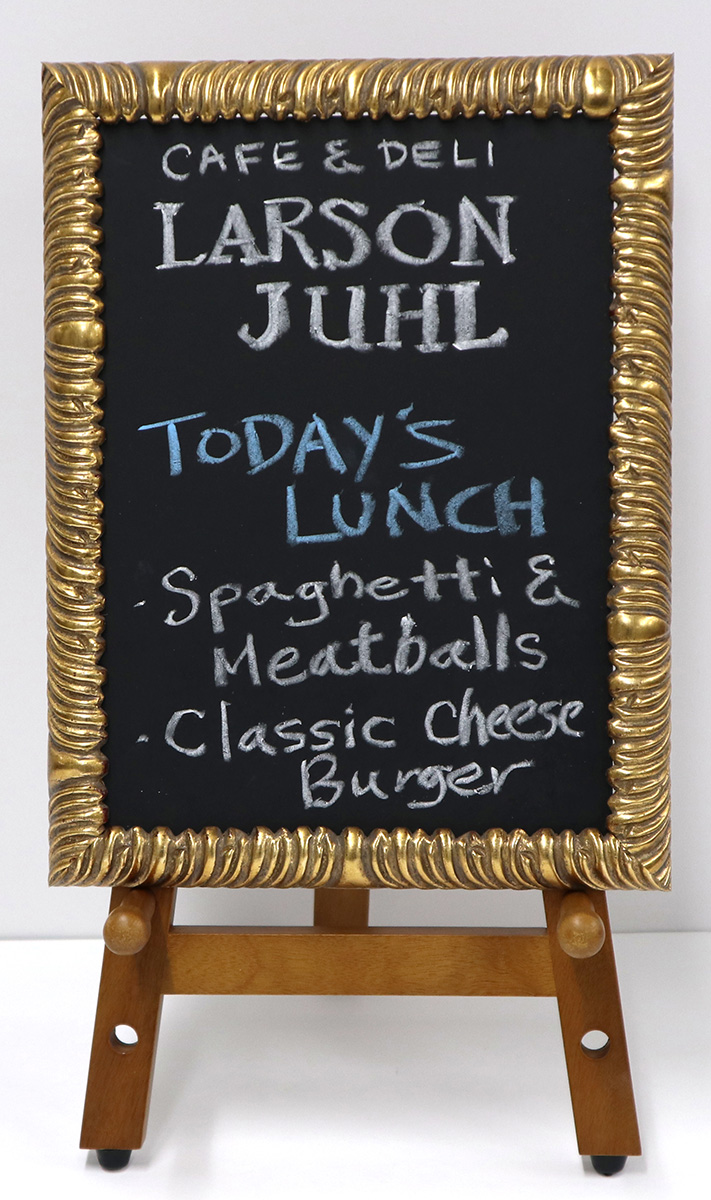 CAFE & DELI
LARSON
JUHL
TODAY'S
LUNCH
· Spaghetti &
Meatballs
· Classic Cheese
Burger